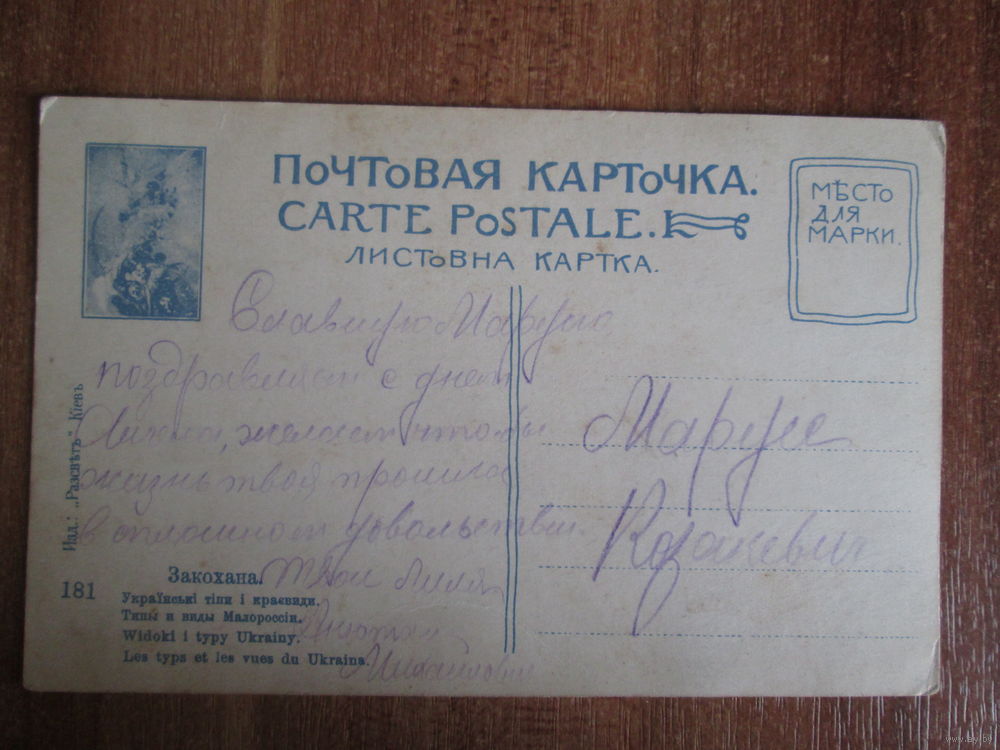 ПОЧТОВАЯ КАРТОЧКА.
CARTE POSTALE.
ЛИСТОВНА КАРТКА.
МѢСТО
ДЛЯ
МАРКИ.
Славную Марусю
поздравляем с днем
желаем чтобы
жизнь твоя прошла
в сплошном удовольствии.
Твои Лиля
Михайлович
Марусе
Козакевич
Изд.: „Разсвѣтъ" Кіевъ
181
Закохана.
Українські тіпи і краєвиди.
Типы и виды Малороссіи.
Widoki i typy Ukrainy.
Les typs et les vues du Ukraina.
www.ay.by